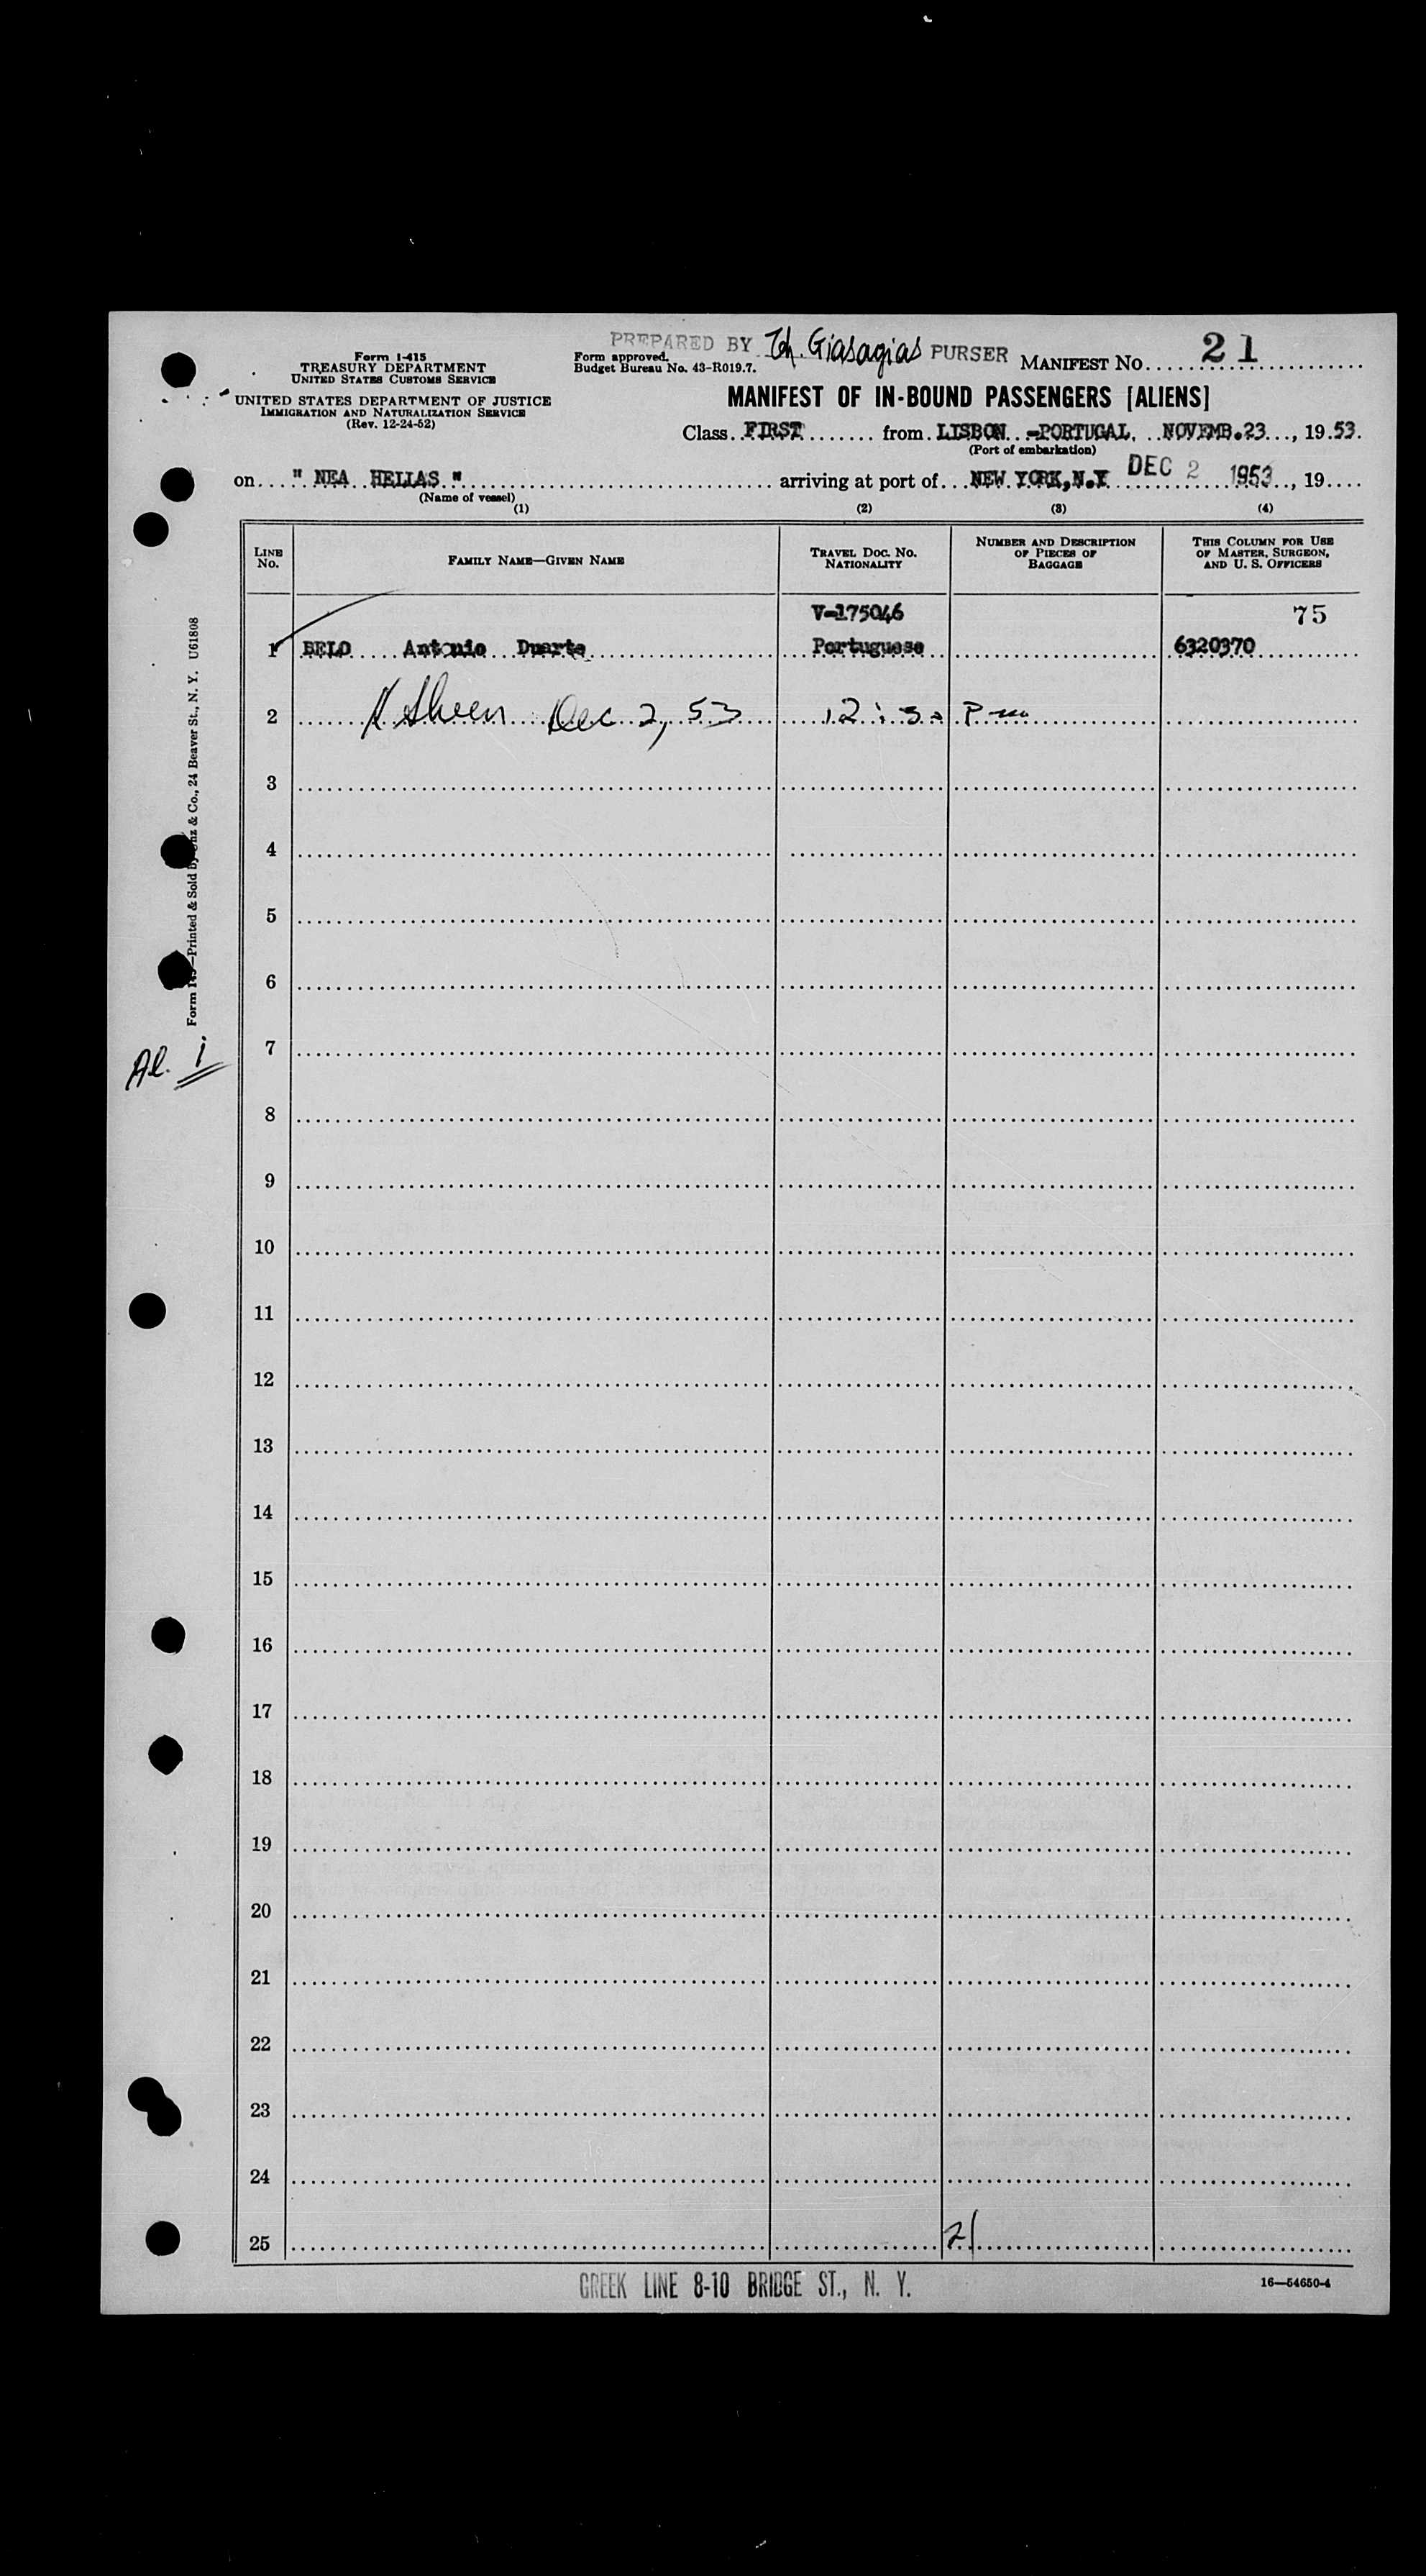 PREPARED BY Th. Giasagias PURSER
Form I-415
TREASURY DEPARTMENT
UNITED STATES CUSTOMS SERVICE
UNITED STATES DEPARTMENT OF JUSTICE
IMMIGRATION AND NATURALIZATION SERVICE
(Rev. 12-24-52)
Form approved.
Budget Bureau No. 43-R019.7.
MANIFEST No. 21
MANIFEST OF IN-BOUND PASSENGERS [ALIENS]
Class FIRST from LISBON -PORTUGAL, NOVEMB.23, 1953.
(Port of embarkation)
on " NEA HELLAS " arriving at port of NEW YORK,N.Y DEC 2 1953, 19
(Name of vessel)
(1) (2) (3) (4)
LINE No. FAMILY NAME—GIVEN NAME TRAVEL DOC. NO. NATIONALITY NUMBER AND DESCRIPTION OF PIECES OF BAGGAGE THIS COLUMN FOR USE OF MASTER, SURGEON, AND U. S. OFFICERS
V-175046 75
1 BELO Antonio Duarte Portuguese 6320370
2 Dec 2, 53 12:30 Pm
3
4
5
6
7
8
9
10
11
12
13
14
15
16
17
18
19
20
21
22
23
24
25 21
Printed & Sold by & Co., 24 Beaver St., N. Y. U61808
Al. 1
GREEK LINE 8-10 BRIDGE ST., N. Y.
16—54650-4